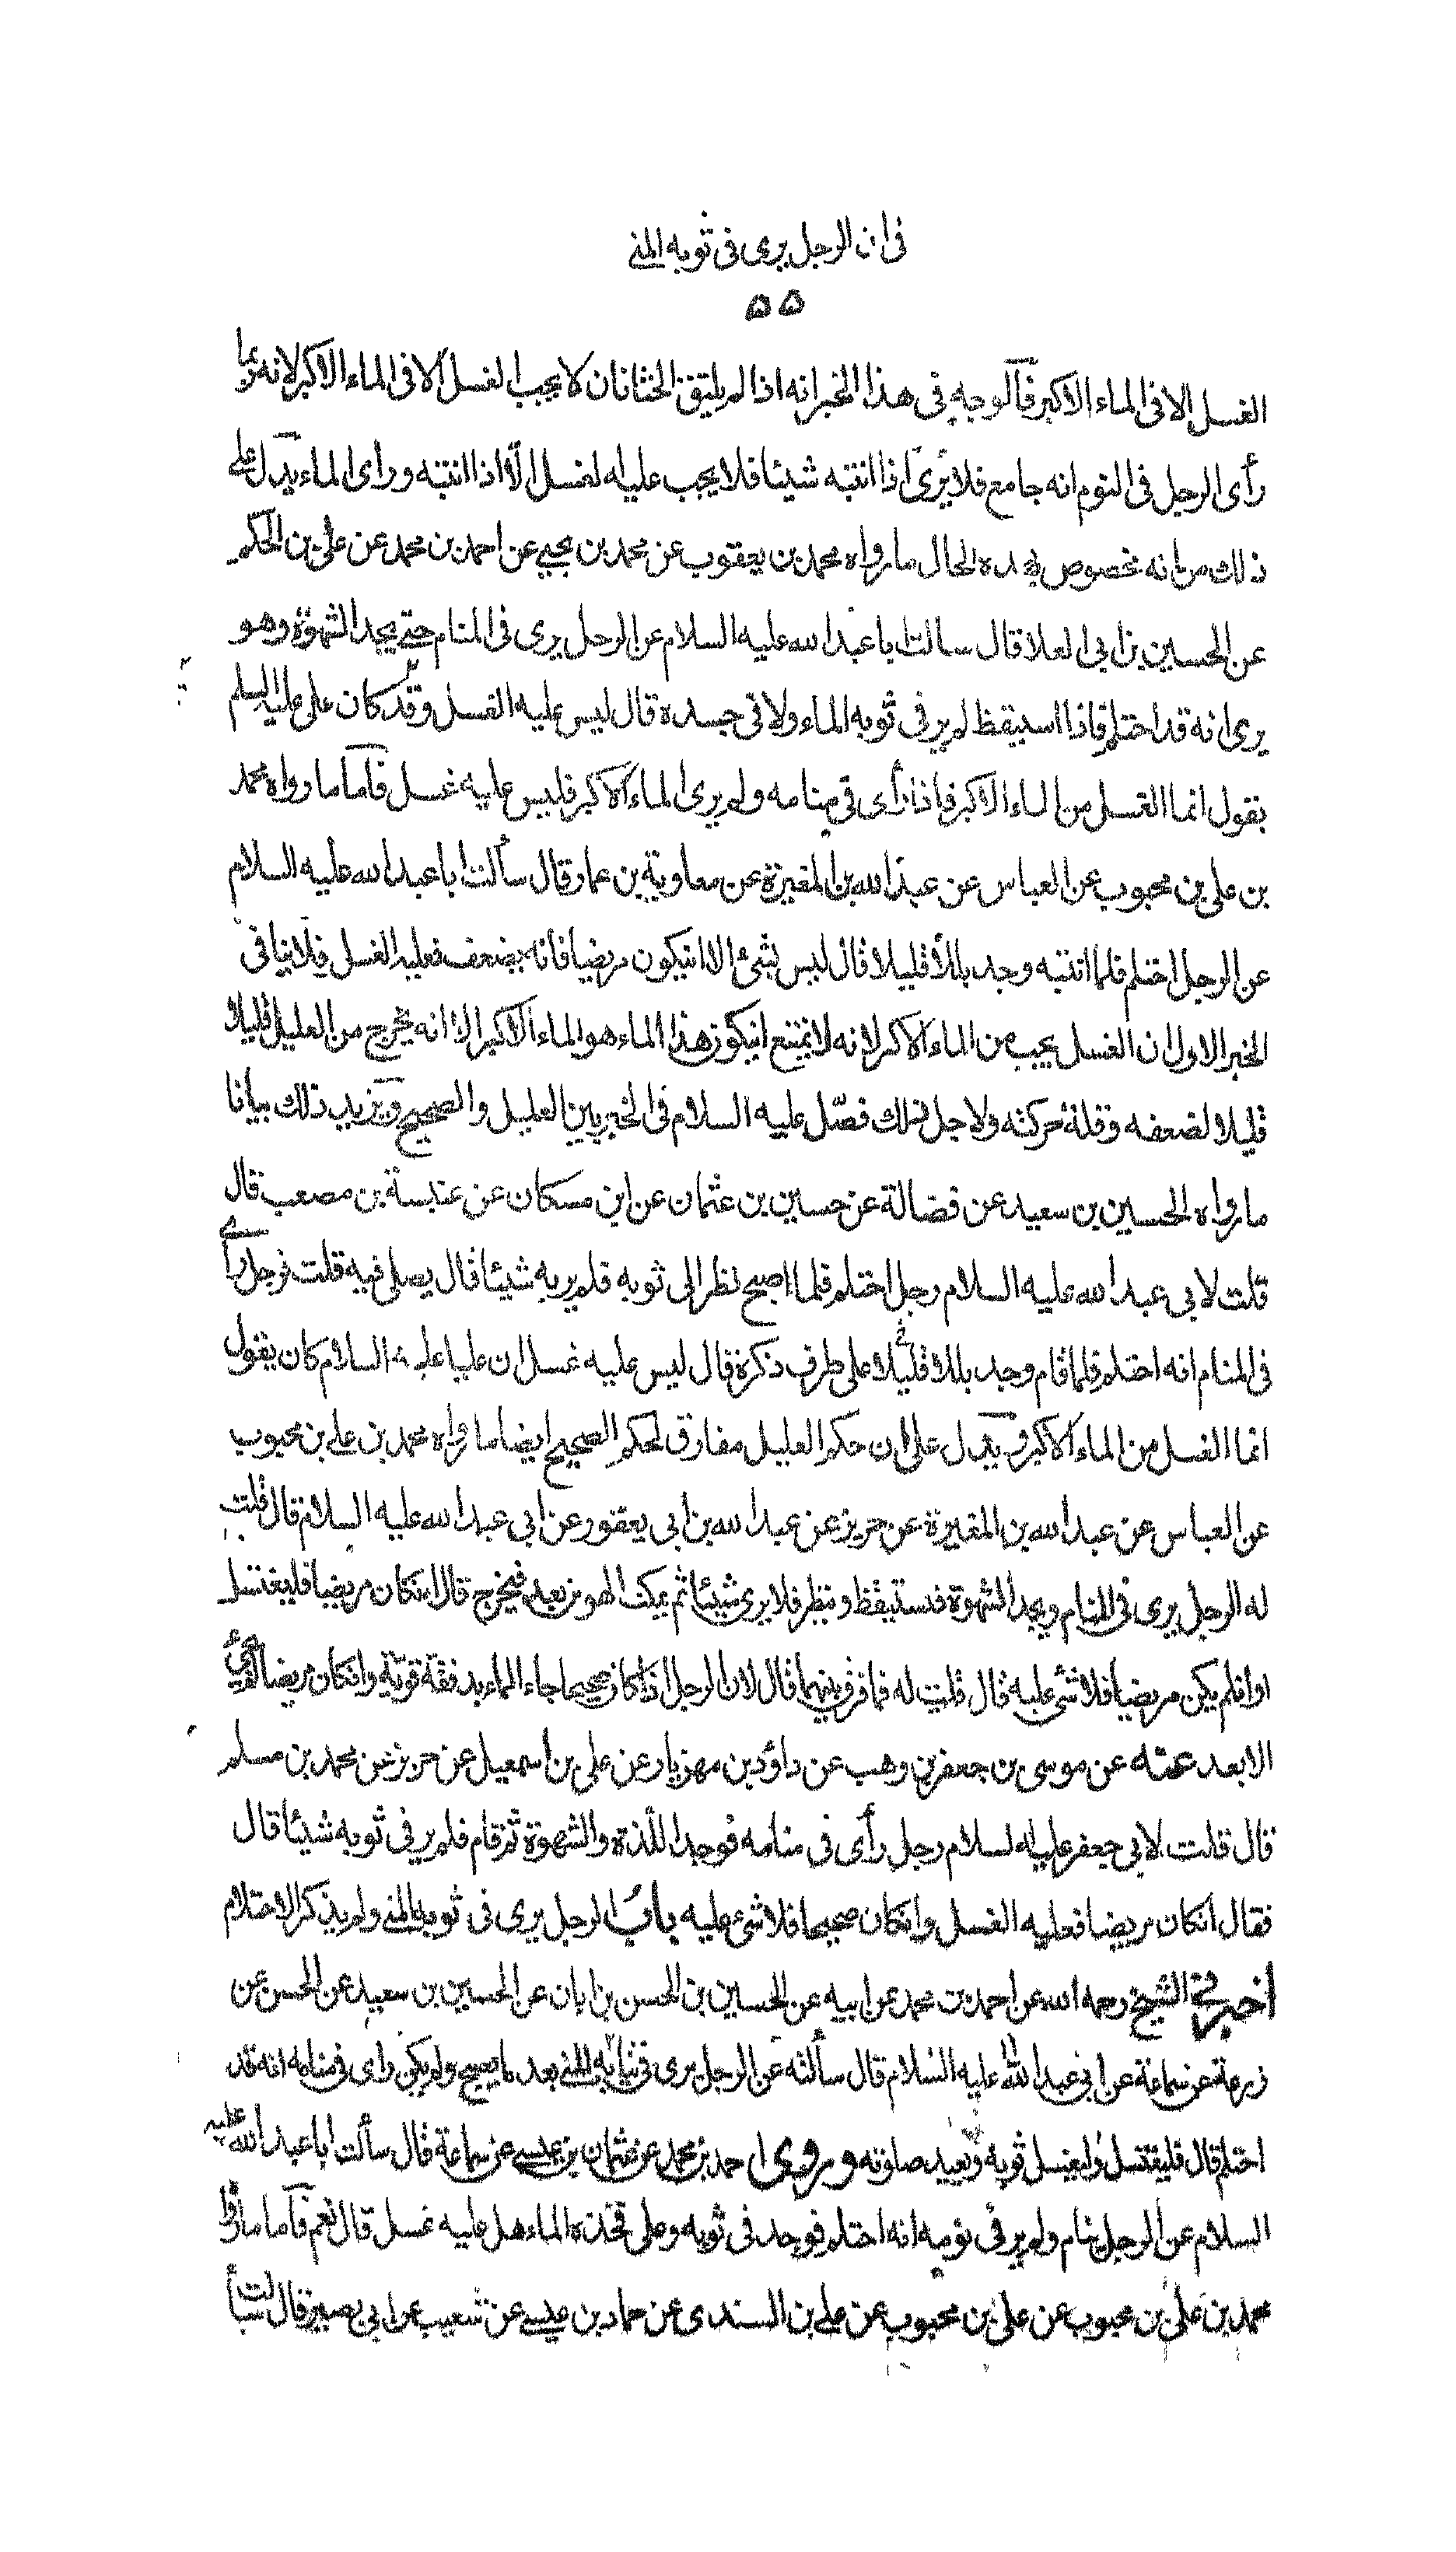 فى ان الرجل يرى فى ثوبه المنى
۵۵
الغسل الا فى الماء الاكبر فالوجه فى هذا الخبر انه اذا لم يلتق الختانان لا يجب الغسل الا فى الماء الاكبر لانه ربما
رأى الرجل فى النوم انه جامع فلا يرى اذا انتبه شيئا فلا يجب عليه الغسل الا اذا انتبه وراى الماء يدل على
ذلك من انه مخصوص بهذه الحال ما رواه محمد بن يعقوب عن محمد بن يحيى عن احمد بن محمد عن على بن الحكم
عن الحسين بن ابى العلا قال سالت ابا عبد الله عليه السلام عن الرجل يرى فى المنام حتى يجد الشهوة وهو
يرى انه قد احتلم فاذا استيقظ لم ير فى ثوبه الماء ولا فى جسده قال ليس عليه الغسل وقد كان على عليه السلم
يقول انما الغسل من الماء الاكبر فاذا رأى فى منامه ولم يرى الماء الاكبر فليس عليه غسل فاما ما رواه محمد
بن على بن محبوب عن العباس عن عبد الله بن المغيرة عن معاوية بن عمار قال سألت ابا عبد الله عليه السلام
عن الرجل احتلم فلما انتبه وجد بللا قليلا قال ليس بشئ الا ان يكون مريضا فانه يضعف فعليه الغسل فلا ينافى
الخبر الاول ان الغسل يجب من الماء الاكبر لانه لا يمتنع ان يكون هذا الماء هو الماء الاكبر الا انه يخرج من العليل قليلا
قليلا لضعفه وقلة حركته ولاجل ذلك فصّل عليه السلام فى الخبر بين العليل والصحيح ويزيد ذلك بيانا
ما رواه الحسين بن سعيد عن فضالة عن حسين بن عثمان عن ابن مسكان عن عنبسة بن مصعب قال
قلت لابى عبد الله عليه السلام رجل احتلم فلما اصبح نظر الى ثوبه فلم ير به شيئا قال يصلى فيه قلت فرجل رأى
فى المنام انه احتلم فلما قام وجد بللا قليلا على طرف ذكره قال ليس عليه غسل ان عليا عليه السلام كان يقول
انما الغسل من الماء الاكبر ويدل على ان حكم العليل مفارق لحكم الصحيح ايضا ما رواه محمد بن على بن محبوب
عن العباس عن عبد الله بن المغيرة عن حريز عن عبد الله بن أبى يعفور عن ابى عبد الله عليه السلام قال قلت
له الرجل يرى فى المنام ويجد الشهوة فيستيقظ وينظر فلا يرى شيئا ثم يمكث الهوين بعد فيخرج قال ان كان مريضا فليغتسل
وان لم يكن مريضا فلا شئ عليه قال قلت له فما فرق بينهما قال لان الرجل اذا كان صحيحا جاء الماء بدفقة قوية وان كان مريضا لم يجئ
الا بعد عنه عن موسى بن جعفر بن وهب عن داؤد بن مهزيار عن على بن اسمعيل عن حريز عن محمد بن مسلم
قال قلت لابى جعفر عليه السلام رجل رأى فى منامه فوجد اللذة والشهوة ثم قام فلم ير فى ثوبه شيئا قال
فقال ان كان مريضا فعليه الغسل وان كان صحيحا فلا شئ عليه باب الرجل يرى فى ثوبه المنى ولم يذكر الاحتلام
أخبرنى الشيخ رحمه الله عن احمد بن محمد عن ابيه عن الحسين بن الحسن بن ابان عن الحسين بن سعيد عن الحسن عن
زرعة عن سماعة عن ابى عبد الله عليه السلام قال سألته عن الرجل يرى فى ثيابه المنى بعد ما يصبح ولم يكن راى فى منامه انه قد
احتلم قال فليغتسل وليغسل ثوبه ويعيد صلوته وروى احمد بن محمد عن عثمان بن عيسى عن سماعة قال سألت ابا عبد الله عليه
السلام عن الرجل ينام ولم ير فى نومه انه احتلم فوجد فى ثوبه وعلى فخذه الماء هل عليه غسل قال نعم فاما ما رواه
محمد بن على بن محبوب عن على بن محبوب عن على بن السندى عن حماد بن عيسى عن شعيب عن ابى بصير قال سألت